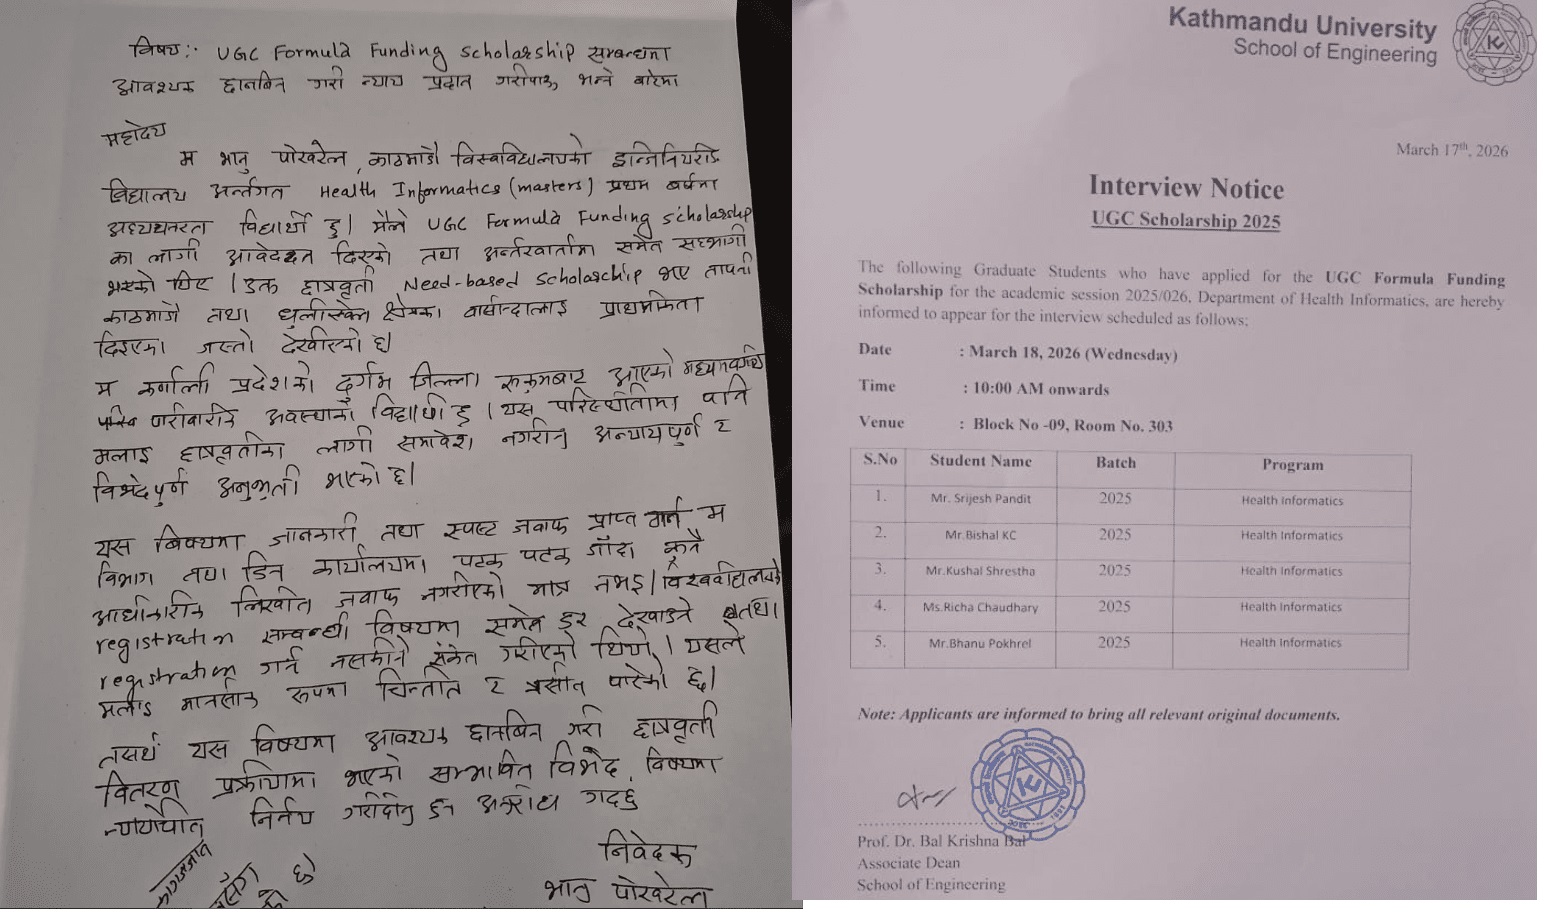 विषय:- UGC Formula Funding scholarship सम्बन्धमा
आवश्यक छानबिन गरी न्याय प्रदान गरीपाऊ भन्ने बारेमा
महोदय
म भानु पोखरेल, काठमाडौ विश्वविद्यालयको इन्जिनियरीङ
विद्यालय अर्न्तगत Health Informatics (masters) प्रथम बर्षमा
अध्ययनरत विद्यार्थी हु। मैले UGC Formula Funding scholarship
का लागी आवेदन दिएको तथा अर्न्तरवार्तामा समेत सहभागी
भएको थिए। उक्त छात्रवृती Need-based scholarship भए तापनी
काठमाडौ तथा धुलीखेल क्षेत्रका बासिन्दालाइ प्राथमिकता
दिइएको जस्तो देखीएको छ।
म कर्णाली प्रदेशको दुर्गम जिल्ला रुकुमबाट आएको मध्यमवर्गीय
पारीवारीक अवस्थाको विद्यार्थी हु। यस परिस्थितीमा पनि
मलाइ छात्रवृतीका लागी समावेश नगरीनु अन्यायपुर्ण र
विभेदपुर्ण अनुभुती भएको छ।
यस बिषयमा जानकारी तथा स्पष्ट जवाफ प्राप्त गर्न म
विभाग तथा डिन कार्यालयमा पटक पटक जाँदा कुनै
आधीकारीक लिखीत जवाफ नगरीएको मात्र नभइ विश्वविद्यालयको
registration सम्बन्धी विषयमा समेत डर देखाउने तथा
registration गर्न नसकीने संकेत गरीएको थियो। यसले
मलाइ मानसीक रुपमा चिन्तीत र त्रसीत पारेको छ।
तसर्थ यस विषयमा आवश्यक छानबिन गरी छात्रवृती
वितरण प्रक्रीयामा भएको सम्भावित विभेद विषयमा
न्यायोचीत निर्नय गरीदीनु हुन अनुरोध गर्दछु
निवेदक
भानु पोखरेल
Kathmandu University
School of Engineering
March 17th, 2026
Interview Notice
UGC Scholarship 2025
The following Graduate Students who have applied for the UGC Formula Funding
Scholarship for the academic session 2025/026, Department of Health Informatics, are hereby
informed to appear for the interview scheduled as follows;
Date : March 18, 2026 (Wednesday)
Time : 10:00 AM onwards
Venue : Block No -09, Room No. 303
S.No Student Name Batch Program
1. Mr. Srijesh Pandit 2025 Health Informatics
2. Mr.Bishal KC 2025 Health Informatics
3. Mr.Kushal Shrestha 2025 Health Informatics
4. Ms.Richa Chaudhary 2025 Health Informatics
5. Mr.Bhanu Pokhrel 2025 Health Informatics
Note: Applicants are informed to bring all relevant original documents.
Prof. Dr. Bal Krishna Bal
Associate Dean
School of Engineering